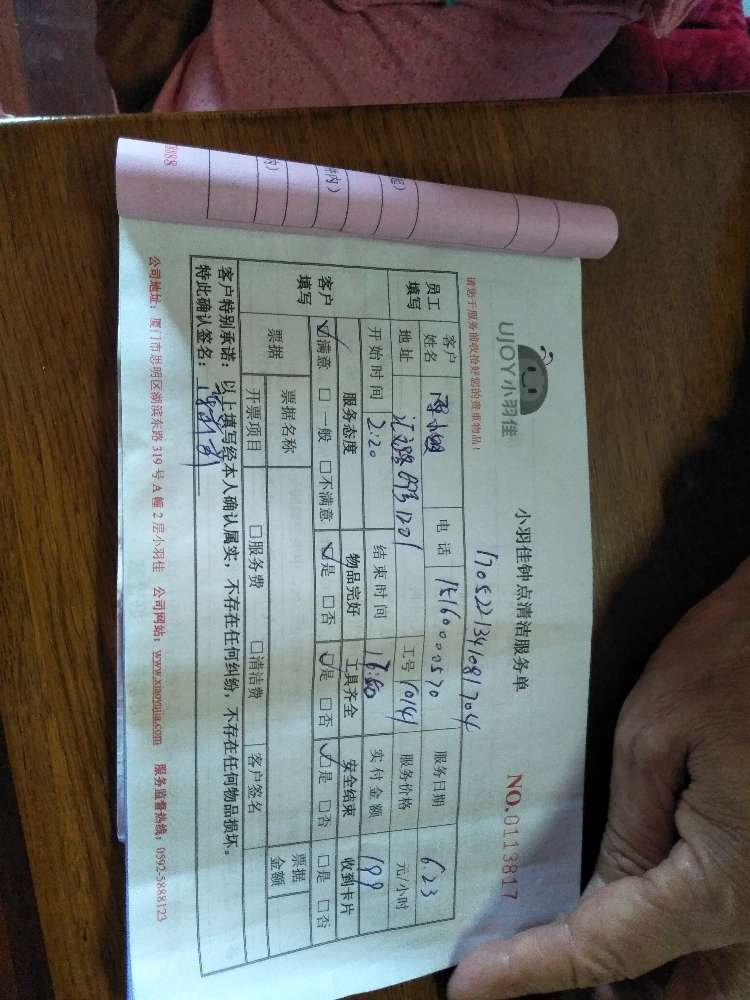 UJOY小羽佳
小羽佳钟点清洁服务单
NO.0113817
请您于服务前收拾好您的贵重物品!
1705221341081704
员工填写 客户姓名 电话 15160000570 服务日期 6.23
地址 1201 工号 1014 服务价格 元/小时
开始时间 2:20 结束时间 实付金额 199
客户填写 服务态度 物品完好 工具齐全 安全结束 收到卡片
☑满意 □一般 □不满意 ☑是 □否 ☑是 □否 ☑是 □否 □是 □否
票据 票据名称 票据金额
开票项目 □服务费 □清洁费 客户签名
客户特别承诺:以上填写经本人确认属实,不存在任何纠纷,不存在任何物品损坏。
特此确认签名:
公司地址:厦门市思明区湖滨东路 319 号 A 幢 2 层小羽佳 公司网站:www.xiaoyujia.com 服务监督热线:0592-5888123
8888